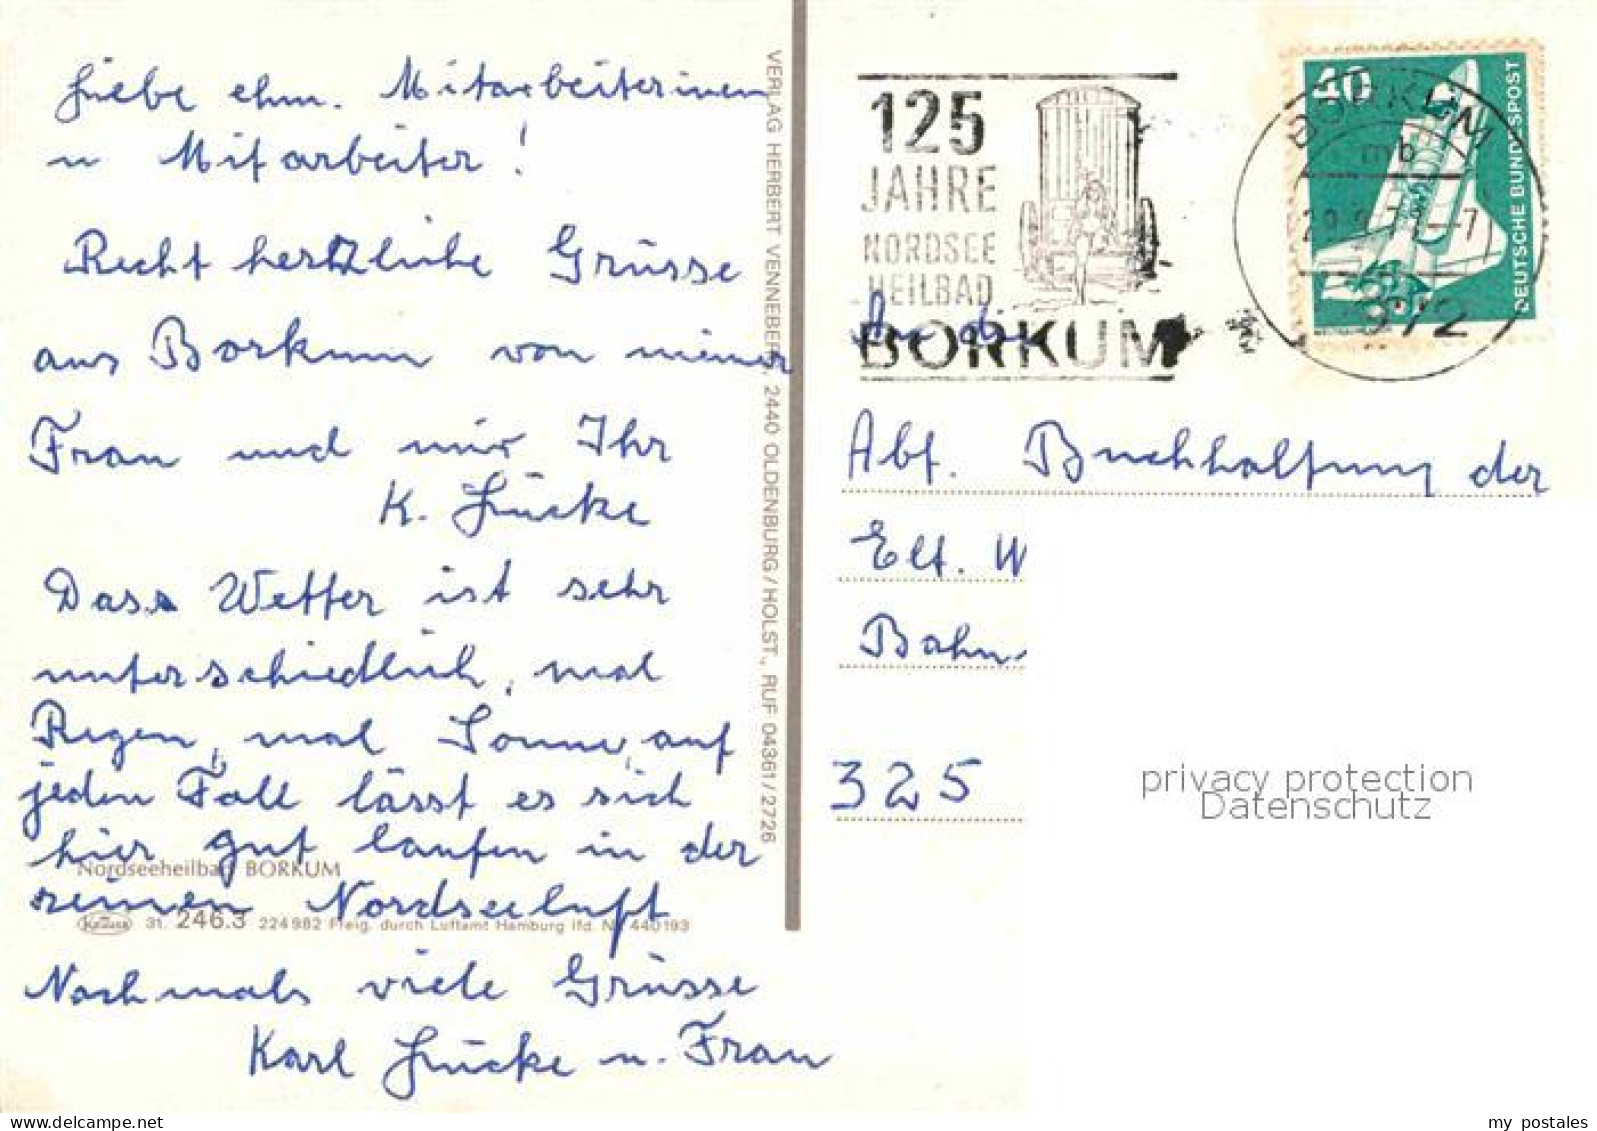 Liebe ehm. Mitarbeiterinnen
u Mitarbeiter!
Recht herzliche Grüsse
aus Borkum von meiner
Frau und mir Ihr
K. Lücke
Dass Wetter ist sehr
unterschiedlich, mal
Regen, mal Sonne, auf
jeden Fall lässt es sich
hier gut laufen in der
reinen Nordseeluft
Nochmals viele Grüsse
Karl Lücke u. Frau
Nordseeheilbad BORKUM
31. 246.3 224982 Freig. durch Luftamt Hamburg lfd. Nr. 440193
VERLAG HERBERT VENNEBERG, 2440 OLDENBURG/HOLST., RUF 04361/2726
125
JAHRE
NORDSEE
HEILBAD
BORKUM
40
DEUTSCHE BUNDESPOST
BORKUM
mb
972
An die
Abt. Buchhaltung der
Elt. W
Bahn
325
privacy protection
Datenschutz
delcampe.net
my_postales